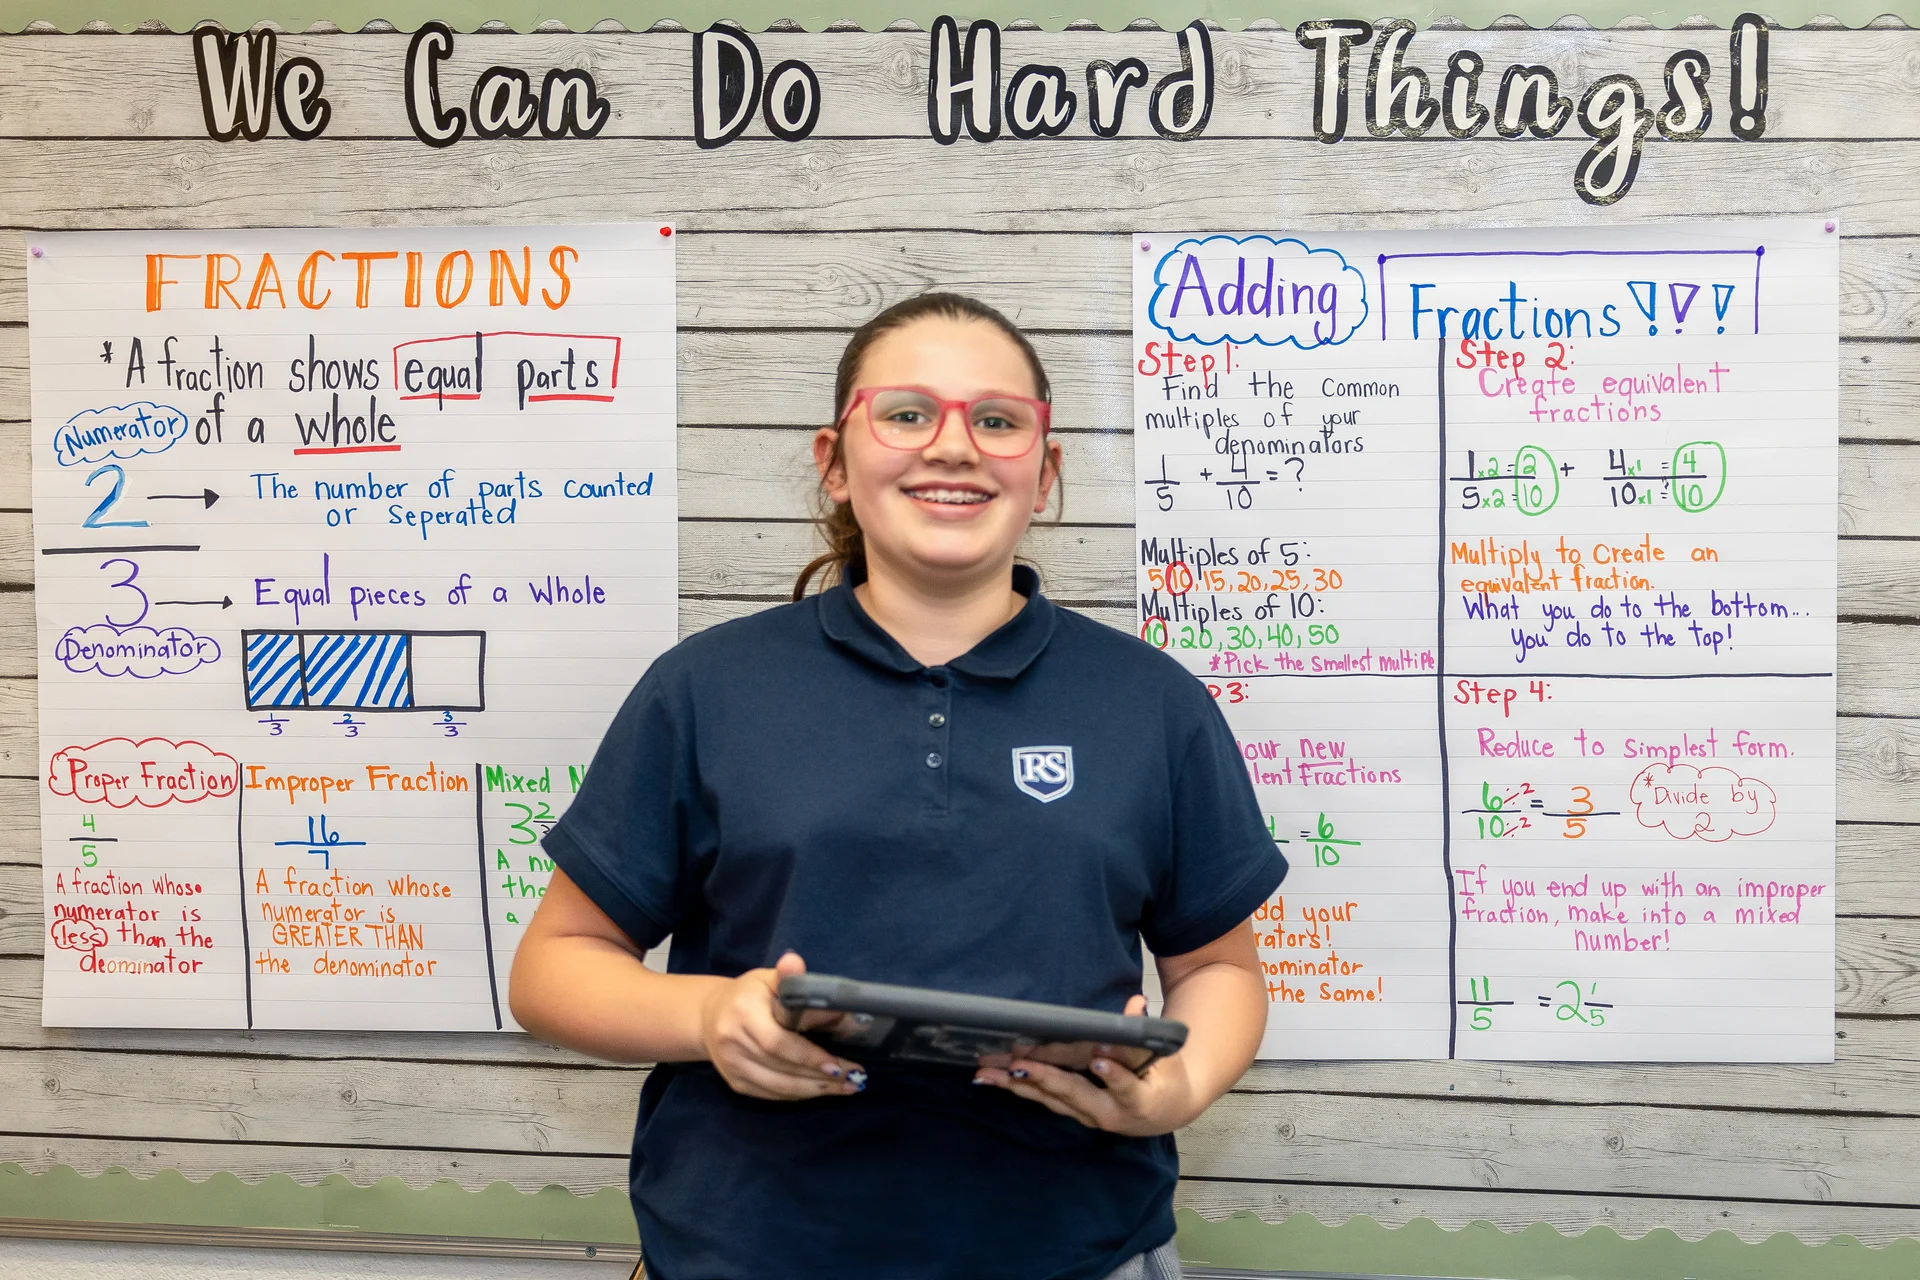 We Can Do Hard Things!
FRACTIONS
* A fraction shows equal parts
of a whole
Numerator
2 → The number of parts counted
or seperated
3 → Equal pieces of a whole
Denominator
1/3 2/3 3/3
Proper Fraction
4/5
A fraction whose
numerator is
less than the
deominator
Improper Fraction
16/7
A fraction whose
numerator is
GREATER THAN
the denominator
Mixed
3 2/3
A
a
RS
Adding Fractions!!!
Step 1:
Find the common
multiples of your
denominators
1/5 + 4/10 = ?
Multiples of 5:
5, 10, 15, 20, 25, 30
Multiples of 10:
10, 20, 30, 40, 50
*Pick the smallest multiple
Step 2:
Create equivalent
fractions
1/5 x2 x2 = 2/10 + 4/10 x1 x1 = 4/10
Multiply to create an
equivalent fraction.
What you do to the bottom...
you do to the top!
3:
your new
fractions
= 6/10
your
the same!
Step 4:
Reduce to simplest form.
6/10 ÷2 ÷2 = 3/5
*Divide by
2
If you end up with an improper
fraction, make into a mixed
number!
11/5 = 2 1/5